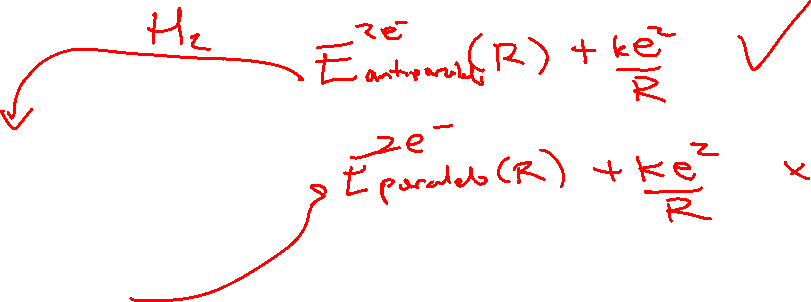 H₂
E^{2e⁻}_{antiparalelo}(R) + ke²/R ✓
E^{2e⁻}_{paralelo}(R) + ke²/R x